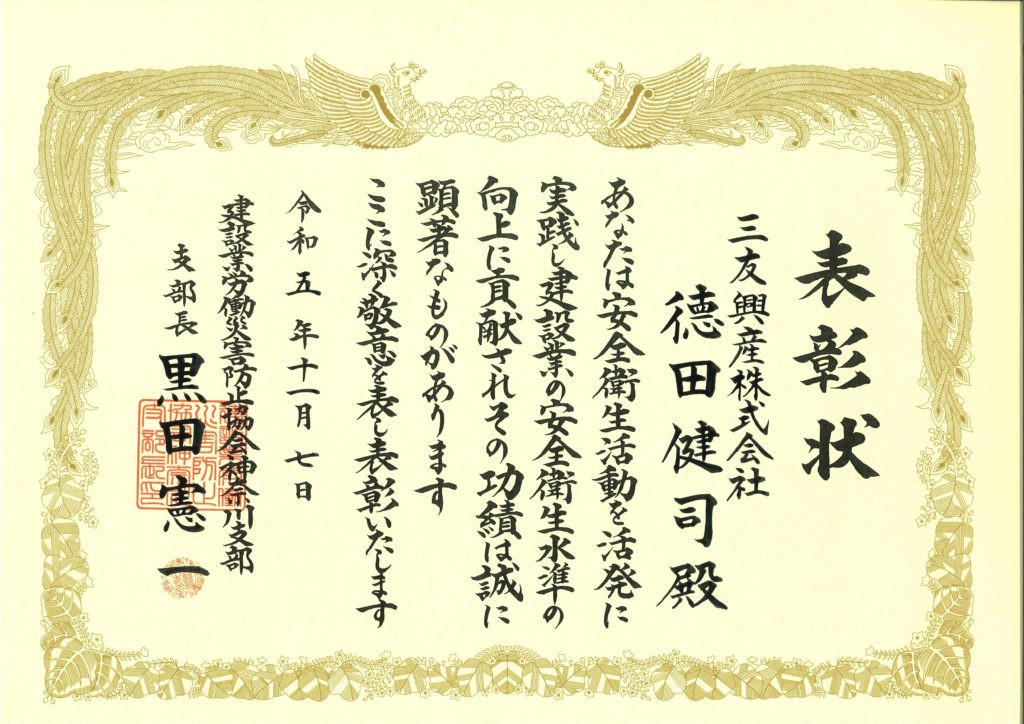 表彰状
三友興産株式会社
德田健司殿
あなたは安全衛生活動を活発に
実践し建設業の安全衛生水準の
向上に貢献されその功績は誠に
顕著なものがあります
ここに深く敬意を表し表彰いたします
令和五年十一月七日
建設業労働災害防止協会神奈川支部
支部長 黒田憲一